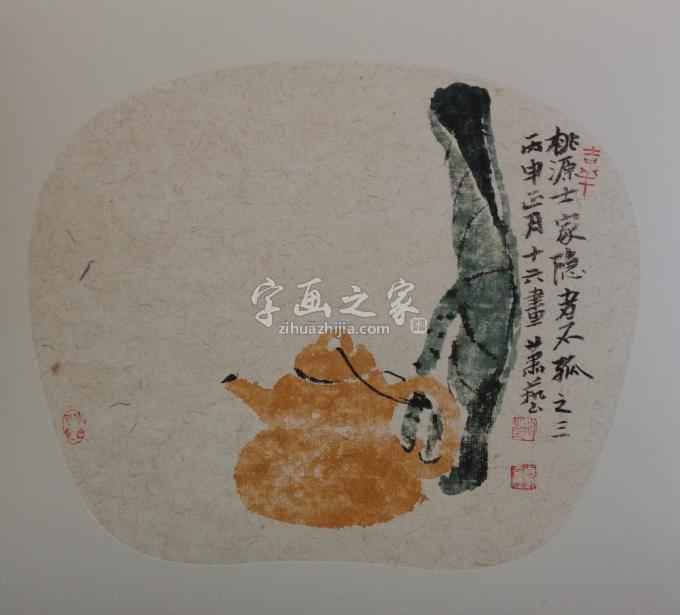 桃源士家隐者不孤之三
丙申正月十六畫 萧藝
吉羊
字画之家
zihuazhijia.com